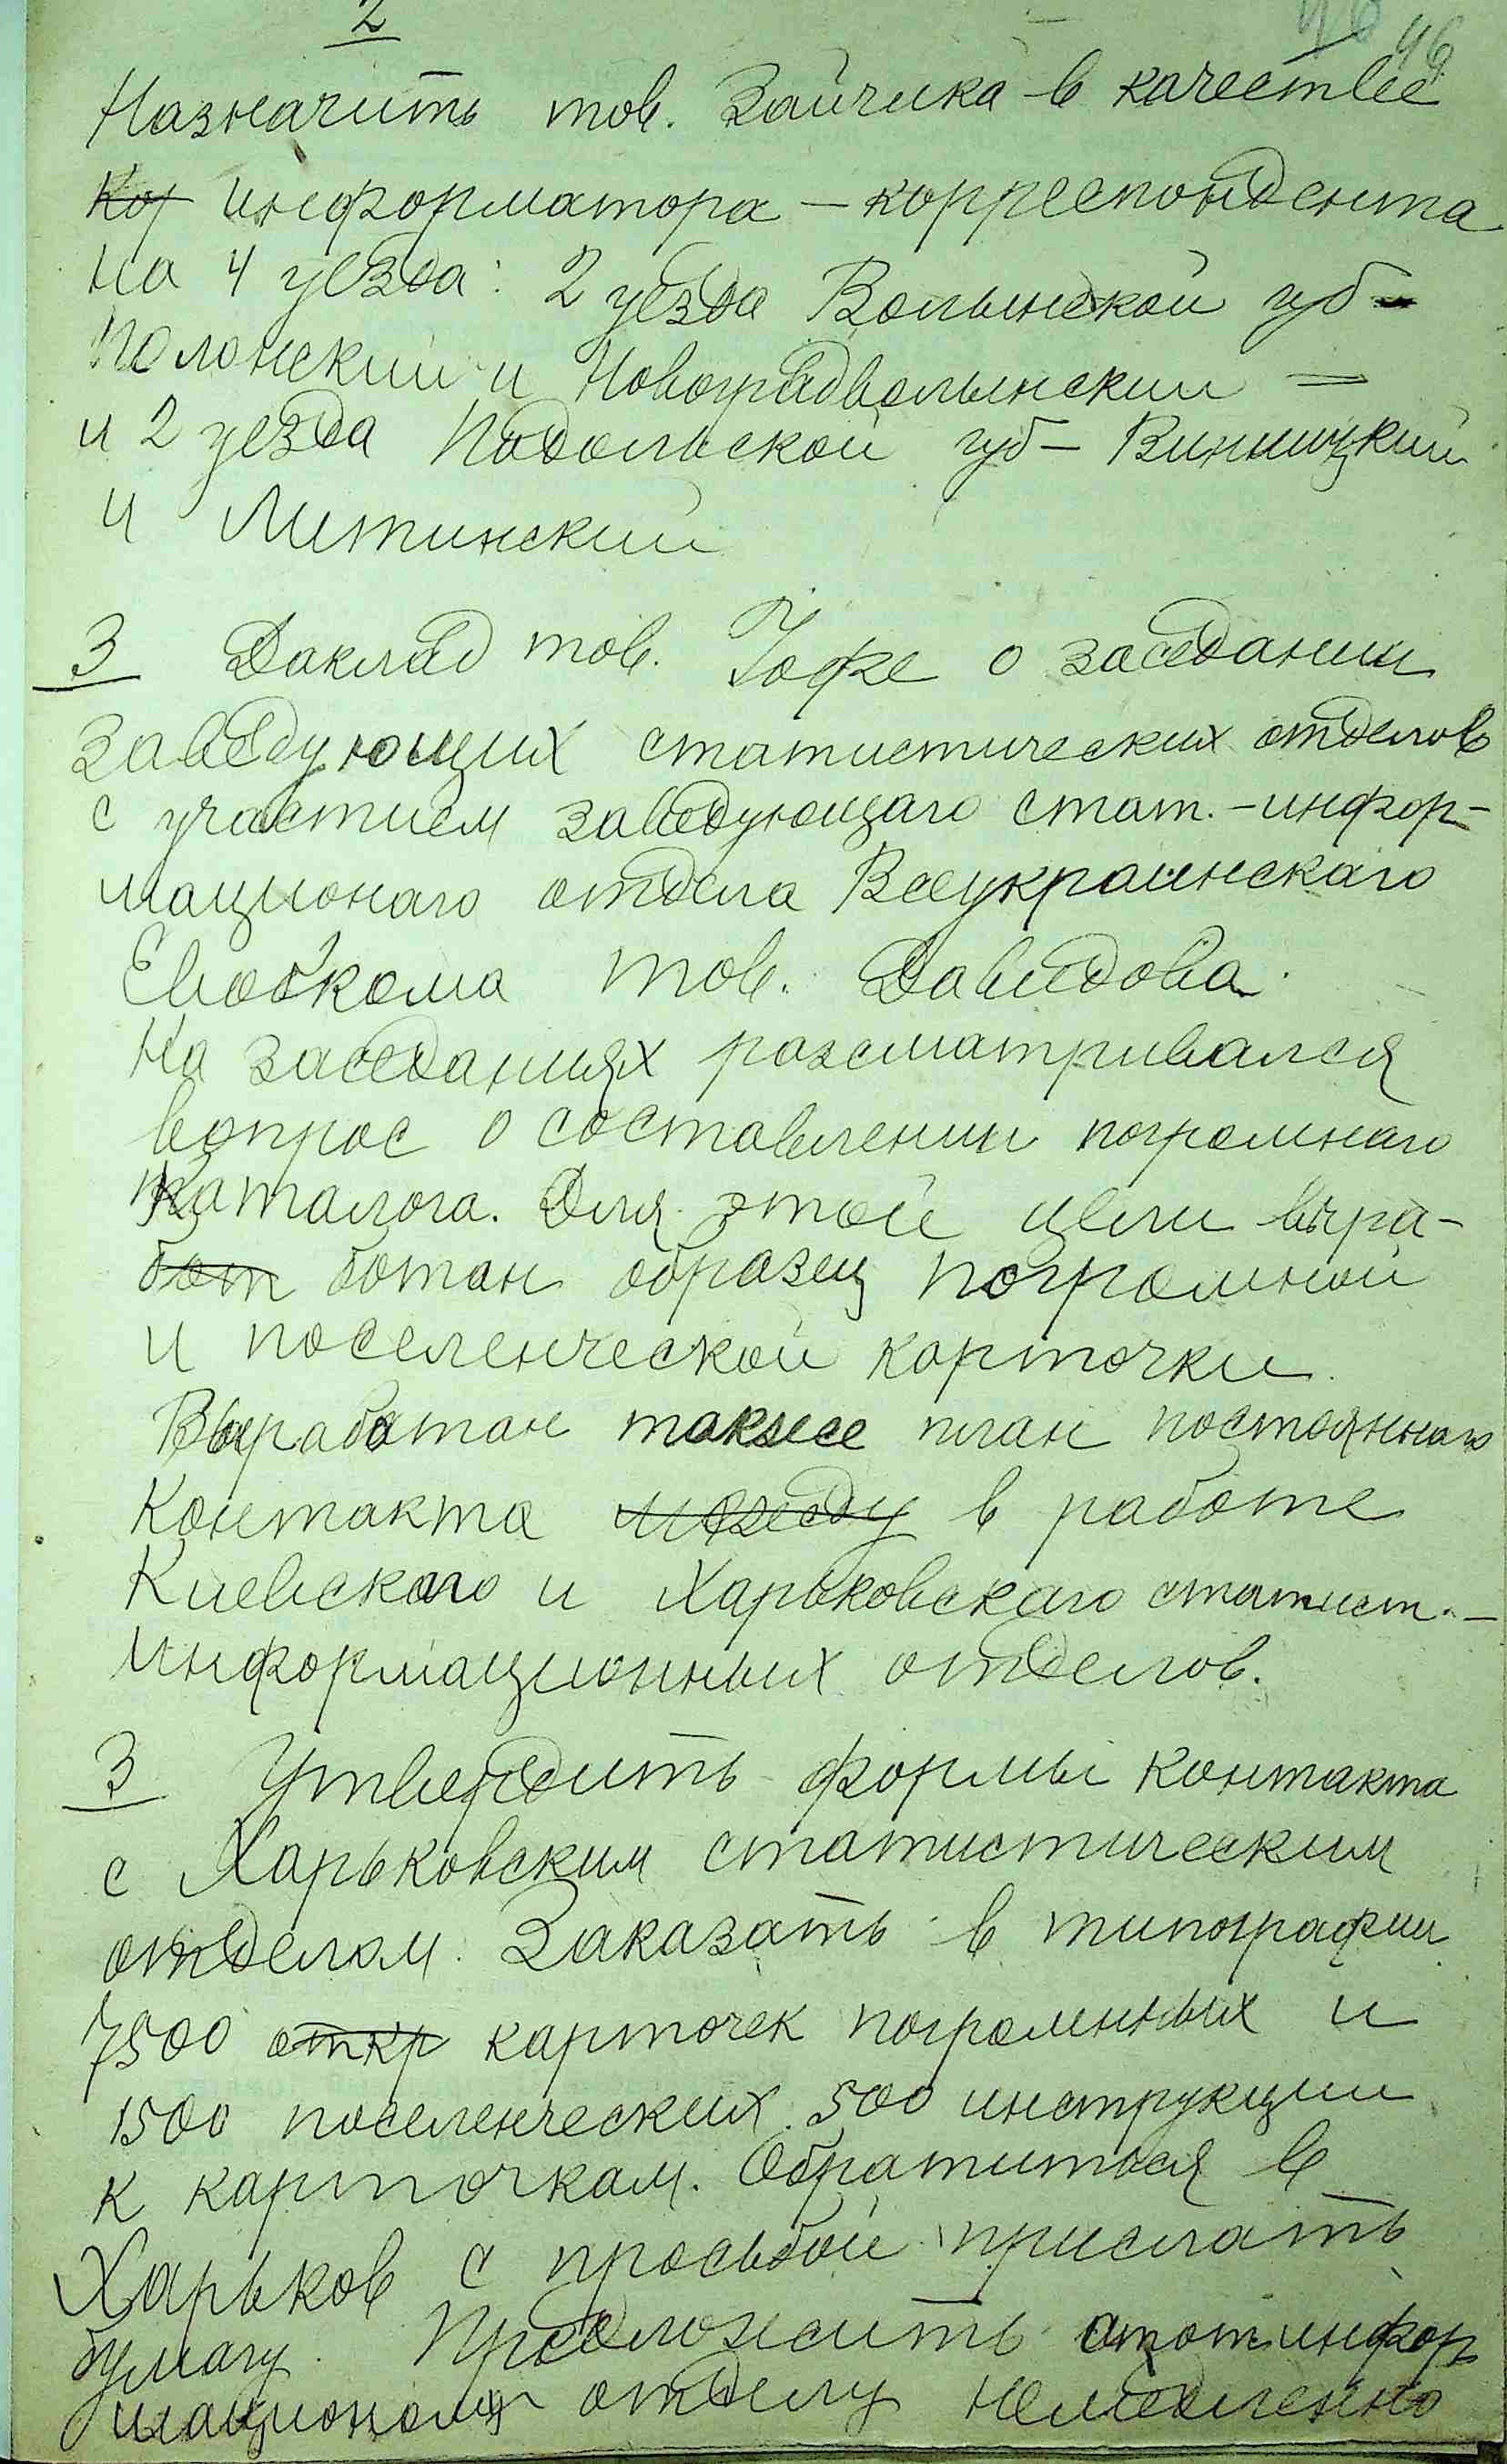 2
46 46
Назначить тов. Зайчика в качестве
Кор информатора – корреспондента
на 4 уезда: 2 уезда Волынской губ –
Полонский и Новоградволынский –
и 2 уезда Подольской губ – Винницкий
и Литинский
3 Доклад тов. Иофе о заседании
заведующих статистических отделов
с участием заведующаго стат. – инфор-
мационаго отдела Всеукраинскаго
Евобкома тов. Давидова.
На заседаниях разсматривался
вопрос о составлении погромнаго
каталога. Для этой цели выра-
бот ботан образец погромной
и поселенческой карточки.
Выработан также план постояннаго
контакта между в работе
Киевскаго и Харьковскаго статист. –
информационных отделов.
3 Утвердить формы контакта
с Харьковским статистическим
отделом. Заказать в типографии
7500 откр карточек погромных и
1500 поселенческих. 500 инструкции
к карточкам. Обратиться в
Харьков с просьбой прислать
бумагу. Предложить статинфор
мационому отделу немедленно